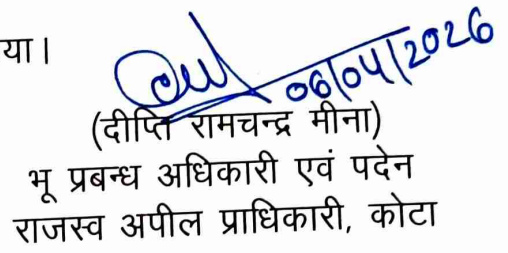 या।
06/04/2026
(दीप्ति रामचन्द्र मीना)
भू प्रबन्ध अधिकारी एवं पदेन
राजस्व अपील प्राधिकारी, कोटा